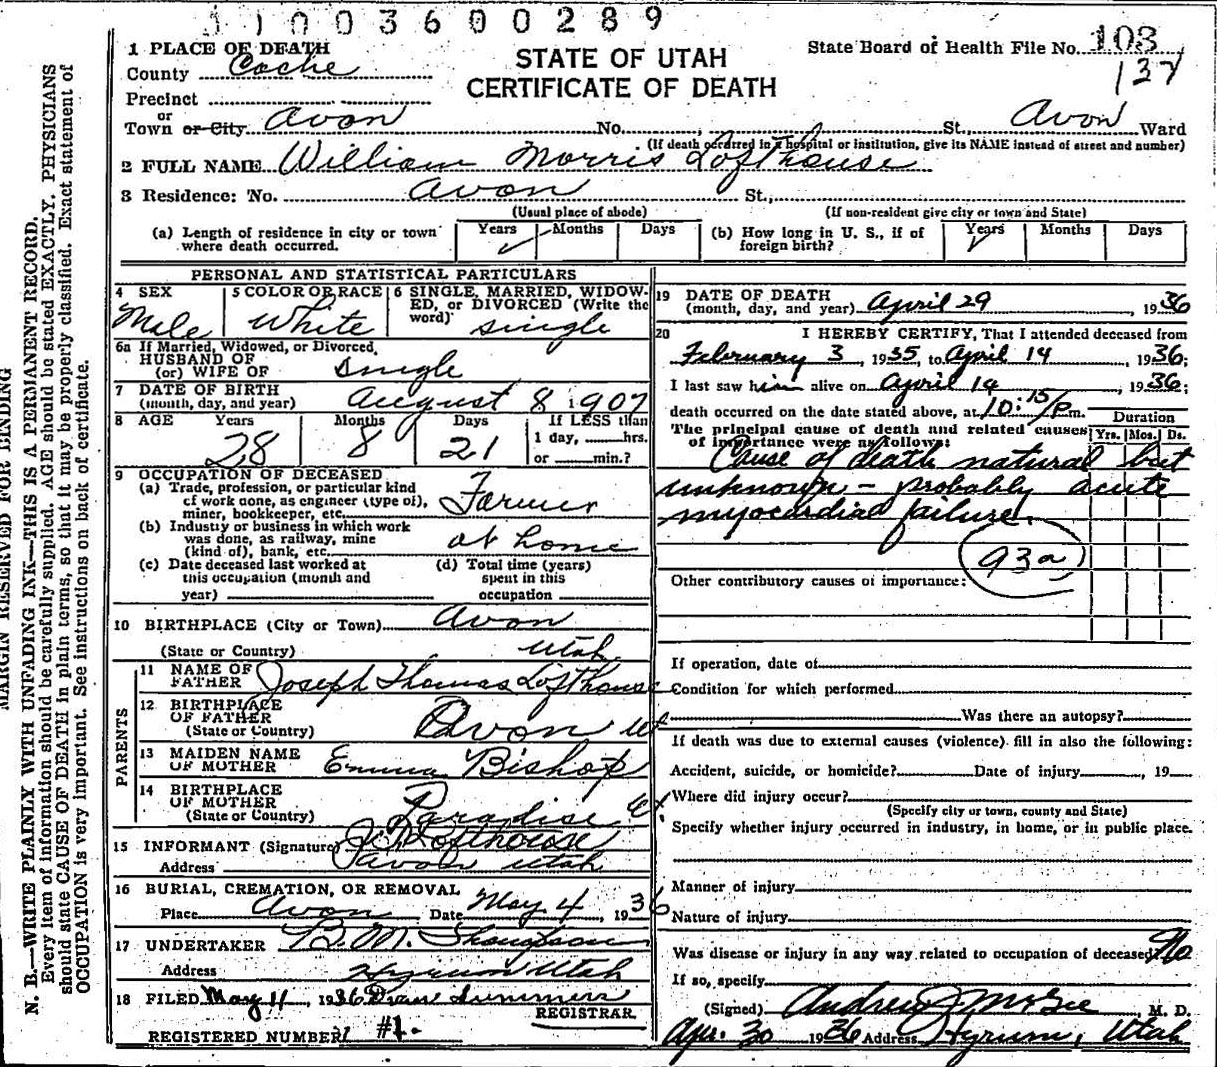 1003600289
1 PLACE OF DEATH
County Cache
Precinct
or
Town or City Avon No. St., Avon Ward
STATE OF UTAH
CERTIFICATE OF DEATH
State Board of Health File No. 103
137
(If death occurred in a hospital or institution, give its NAME instead of street and number)
2 FULL NAME William Morris Lofthouse
3 Residence: No. Avon St.,
(Usual place of abode) (If non-resident give city or town and State)
(a) Length of residence in city or town where death occurred. Years ✓ Months Days
(b) How long in U. S., if of foreign birth? Years ✓ Months Days
PERSONAL AND STATISTICAL PARTICULARS
4 SEX
Male
5 COLOR OR RACE
White
6 SINGLE, MARRIED, WIDOW-
ED, or DIVORCED (Write the
word) single
6a If Married, Widowed, or Divorced,
HUSBAND OF
(or) WIFE OF single
7 DATE OF BIRTH
(month, day, and year) August 8 1907
8 AGE Years Months Days If LESS than
28 8 21 1 day, hrs.
or min.?
9 OCCUPATION OF DECEASED
(a) Trade, profession, or particular kind
of work done, as engineer (type of),
miner, bookkeeper, etc. Farmer
(b) Industry or business in which work
was done, as railway, mine
(kind of), bank, etc. at home
(c) Date deceased last worked at
this occupation (month and
year)
(d) Total time (years)
spent in this
occupation
10 BIRTHPLACE (City or Town) Avon
(State or Country) Utah
PARENTS
11 NAME OF
FATHER Joseph Thomas Lofthouse
12 BIRTHPLACE
OF FATHER
(State or Country) Avon Ut
13 MAIDEN NAME
OF MOTHER Emma Bishop
14 BIRTHPLACE
OF MOTHER
(State or Country) Paradise Ut.
15 INFORMANT (Signature) Lofthouse
Address Avon Utah
16 BURIAL, CREMATION, OR REMOVAL
Place Avon Date May 4, 1936
17 UNDERTAKER B. M. Thompson
Address Hyrum Utah
18 FILED May 11, 1936 Summers
REGISTRAR.
REGISTERED NUMBER #1.
19 DATE OF DEATH
(month, day, and year) April 29, 1936
20 I HEREBY CERTIFY, That I attended deceased from
February 3, 1935, to April 14, 1936;
I last saw him alive on April 14, 1936;
death occurred on the date stated above, at 10:15 P m.
The principal cause of death and related causes
of importance were as follows:
Duration
Yrs. Mos. Ds.
Cause of death natural but
unknown - probably acute
myocardial failure.
93a
Other contributory causes of importance:
If operation, date of
Condition for which performed
Was there an autopsy?
If death was due to external causes (violence) fill in also the following:
Accident, suicide, or homicide? Date of injury, 19
Where did injury occur?
(Specify city or town, county and State)
Specify whether injury occurred in industry, in home, or in public place.
Manner of injury
Nature of injury
Was disease or injury in any way related to occupation of deceased No
If so, specify
(Signed) Andrew J McGee, M. D.
Apr. 30 1936 Address Hyrum, Utah
MARGIN RESERVED FOR BINDING
N. B.—WRITE PLAINLY WITH UNFADING INK—THIS IS A PERMANENT RECORD.
Every item of information should be carefully supplied. AGE should be stated EXACTLY. PHYSICIANS
should state CAUSE OF DEATH in plain terms, so that it may be properly classified. Exact statement of
OCCUPATION is very important. See instructions on back of certificate.